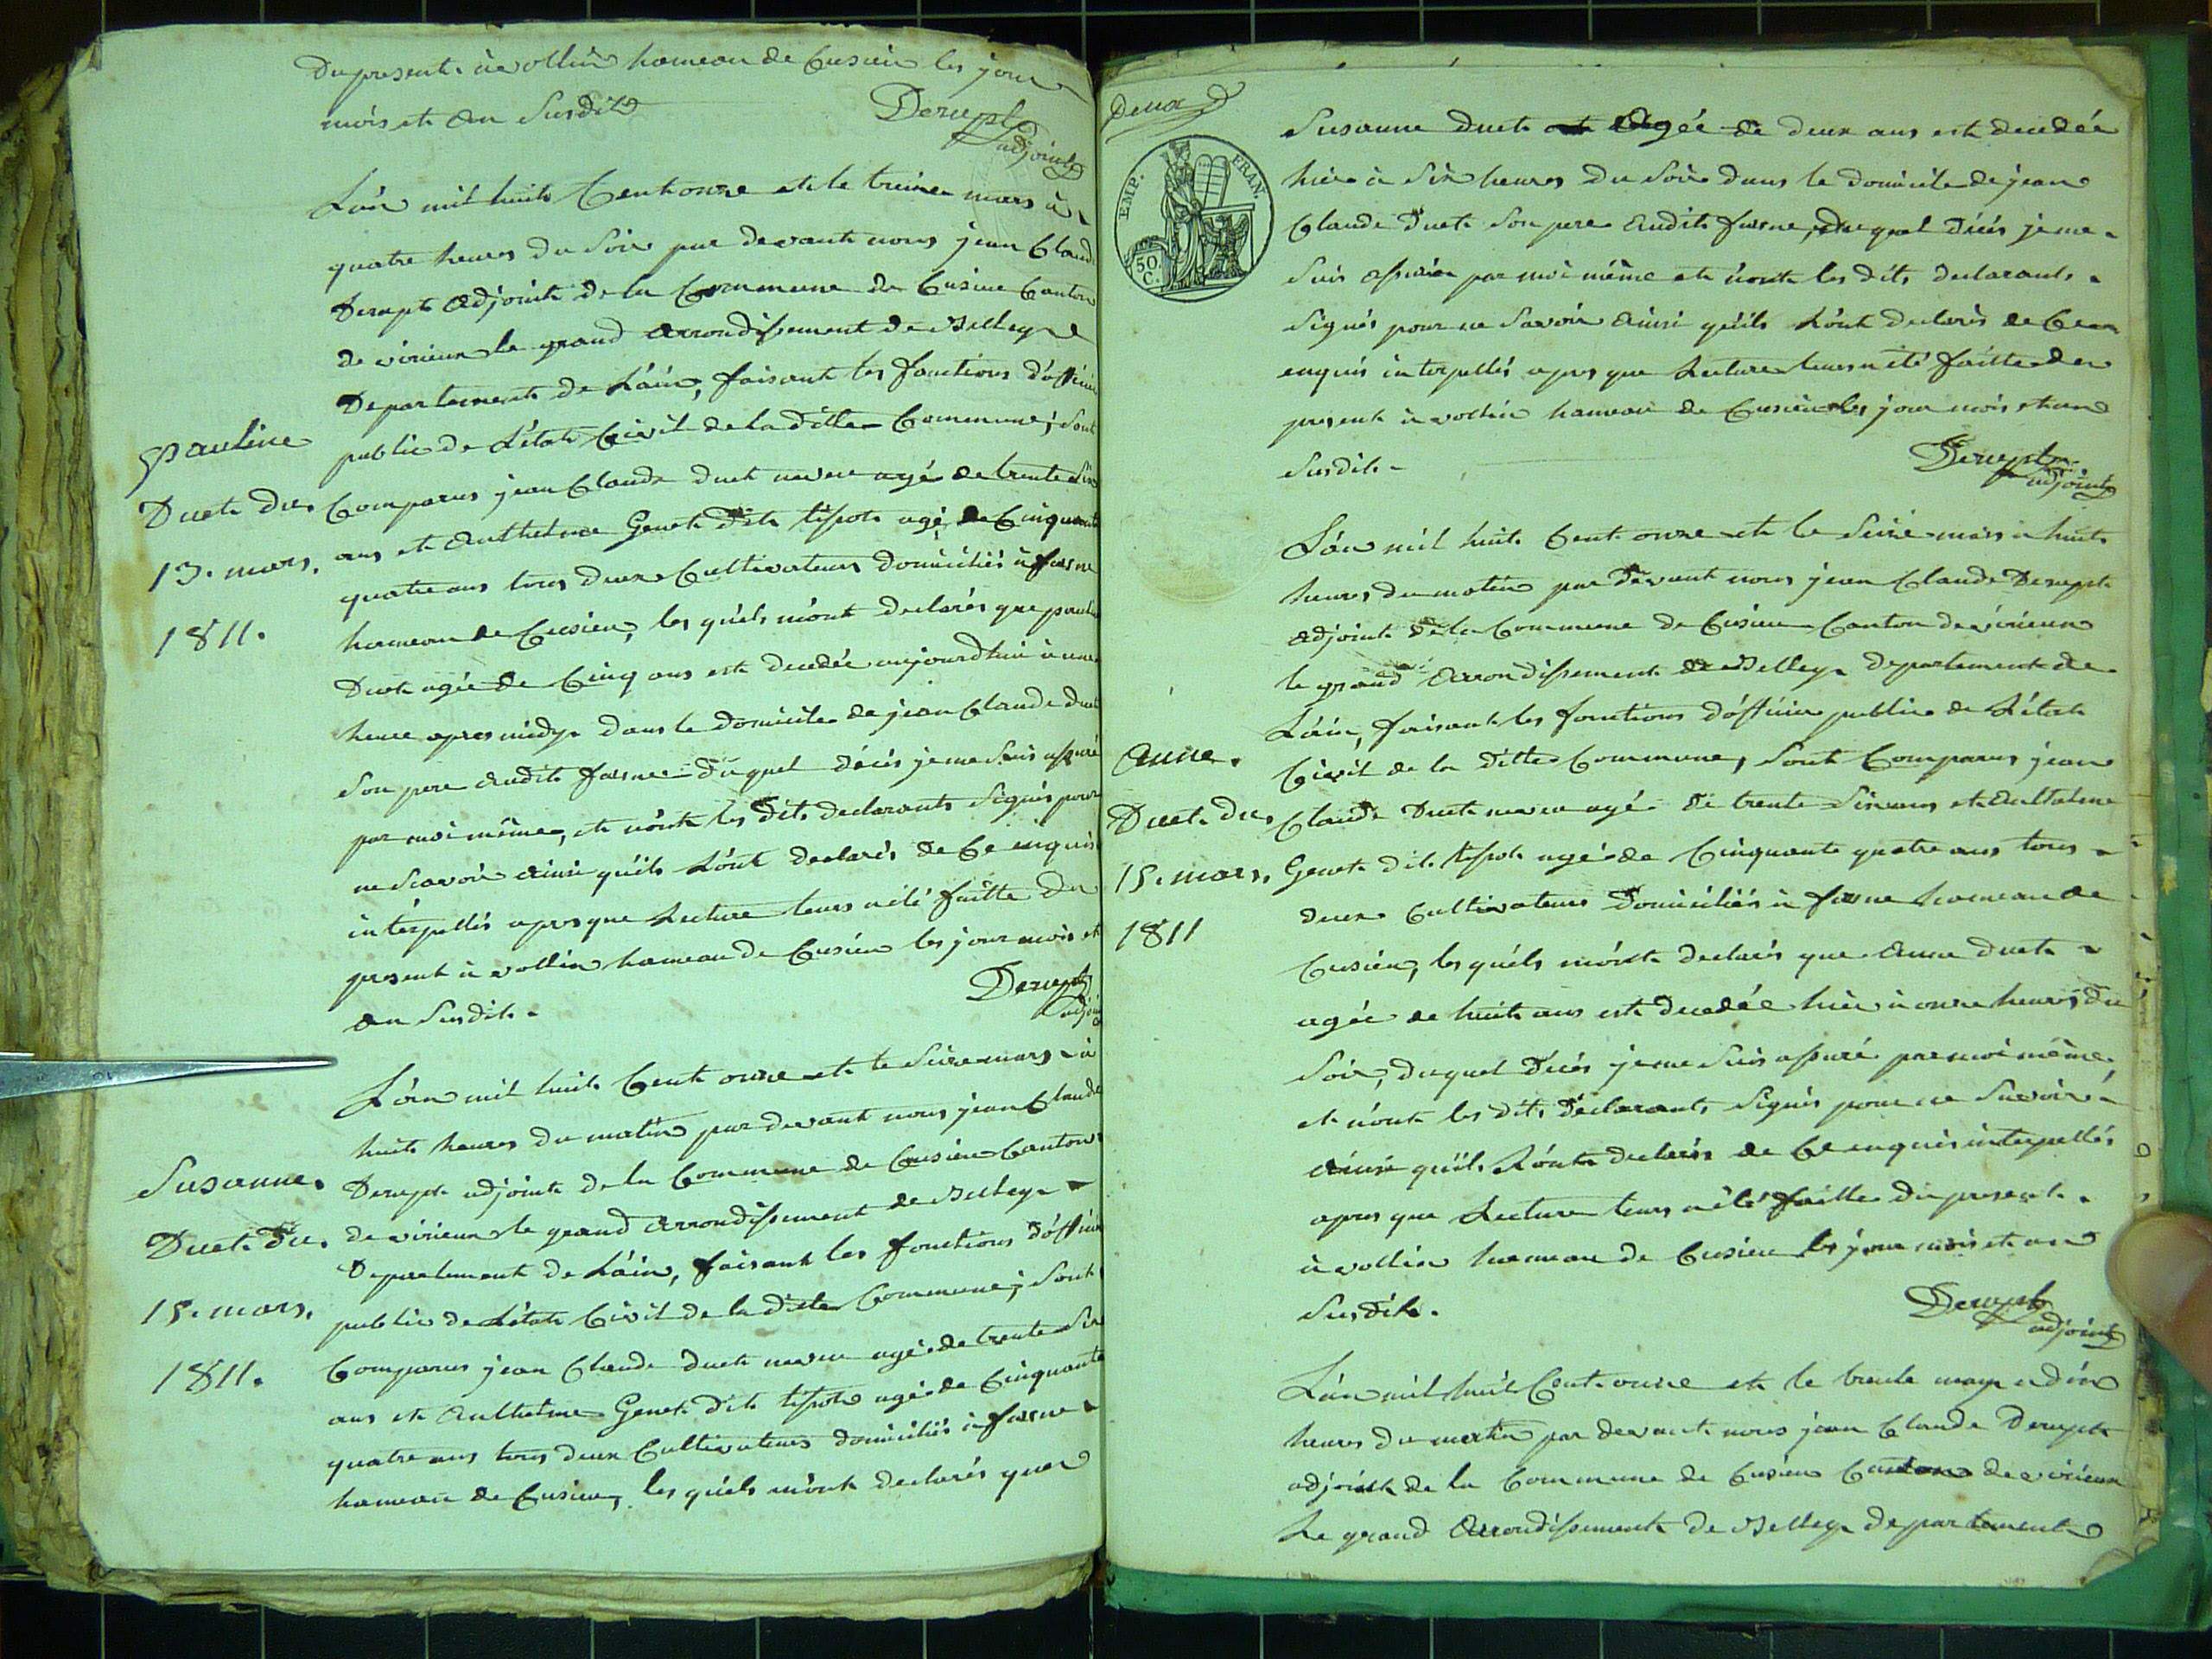 Du present. à vollin hameau de Cusieu les jour
mois et an Susdits
Derupt
adjoint
L'an mil huit Cent onze et le treize mars à
quatre heures du Soir par devant nous jean Claude
Derupt adjoint de la Commune de Cusieu Canton
de virieux le grand arrondissement de Belley
Departement de L'ain, faisant les fonctions d'officier
public de L'état Civil de la ditte Commune; Sont
Pauline
Duet du
13. mars.
1811.
Comparus jean Claude duet neveu agé de trente Six
ans et Anthelme Genet dit tissot agé de Cinquante
quatre ans tous deux Cultivateurs domiciliés à fasne
hameau de Cusieu, les quels m'ont declarés que pauline
Duet agée de Cinq ans est decedée aujourdhui à une
heure apres midy dans le domicile de jean Claude duet
Son pere audit fasne duquel décés je me Suis assuré
par moi même, et n'ont les dits declarants Signés pour
ne Scavoir ainsi qu'ils L'ont declarés de Ce enquis
interpellés apres que Lecture leurs a été faitte du
present à vollin hameau de Cusieu les jour mois et
an Susdit.
Derupt
adjoint
L'an mil huit Cent onze et le Seize mars à
huit heures du matin par devant nous jean Claude
Derupt adjoint de la Commune de Cusieu Canton
de virieux le grand arrondissement de Belley
Departement de L'ain, faisant les fonctions d'officier
public de L'état Civil de la ditte Commune; Sont
Susanne
Duet du
15. mars.
1811.
Comparus jean Claude duet neveu agé de trente Six
ans et Anthelme Genet dit tissot agé de Cinquante
quatre ans tous deux Cultivateurs domiciliés à fasne
hameau de Cusieu, les quels m'ont declarés que
Deux
EMP. FRAN.
50 C.
Susanne duet agée de deux ans est decedée
hier à Six heures du Soir dans le domicile de jean
Claude Duet Son pere audit fasne, duquel décés je me
Suis assurée par moi même et n'ont les dits declarants
Signés pour ne Savoir ainsi qu'ils L'ont declarés de Ce
enquis interpellés apres que Lecture leurs a été faitte du
present à vollin hameau de Cusieu les jour mois et an
Susdit.
Derupt
adjoint
L'an mil huit Cent onze et le Seize mars à huit
heures du matin par devant nous jean Claude Derupt
adjoint de la Commune de Cusieu Canton de virieux
le grand arrondissement de Belley Departement de
L'ain, faisant les fonctions d'officier public de L'état
Civil de la ditte Commune, Sont Comparus jean
Anne.
Duet du
15. mars.
1811
Claude Duet neveu agé de trente Six ans et Anthelme
Genet dit tissot agé de Cinquante quatre ans tous
deux Cultivateurs Domiciliés à fasne hameau de
Cusieu, les quels m'ont declarés que Anne duet
agée de huit ans est decedée hier à onze heures du
Soir, duquel décés je me Suis assuré par moi même,
et n'ont les dits déclarants Signés pour ne Savoir
ainsi qu'ils L'ont declarés de Ce enquis interpellés
apres que Lecture leurs a été faitte du present
à vollin hameau de Cusieu les jour mois et an
Susdit.
Derupt
adjoint
L'an mil huit Cent onze et le trente may a dix
heures du matin par devant nous jean Claude Derupt
adjoint de la Commune de Cusieu Canton de virieux
Le grand Arrondissement de Belley departement